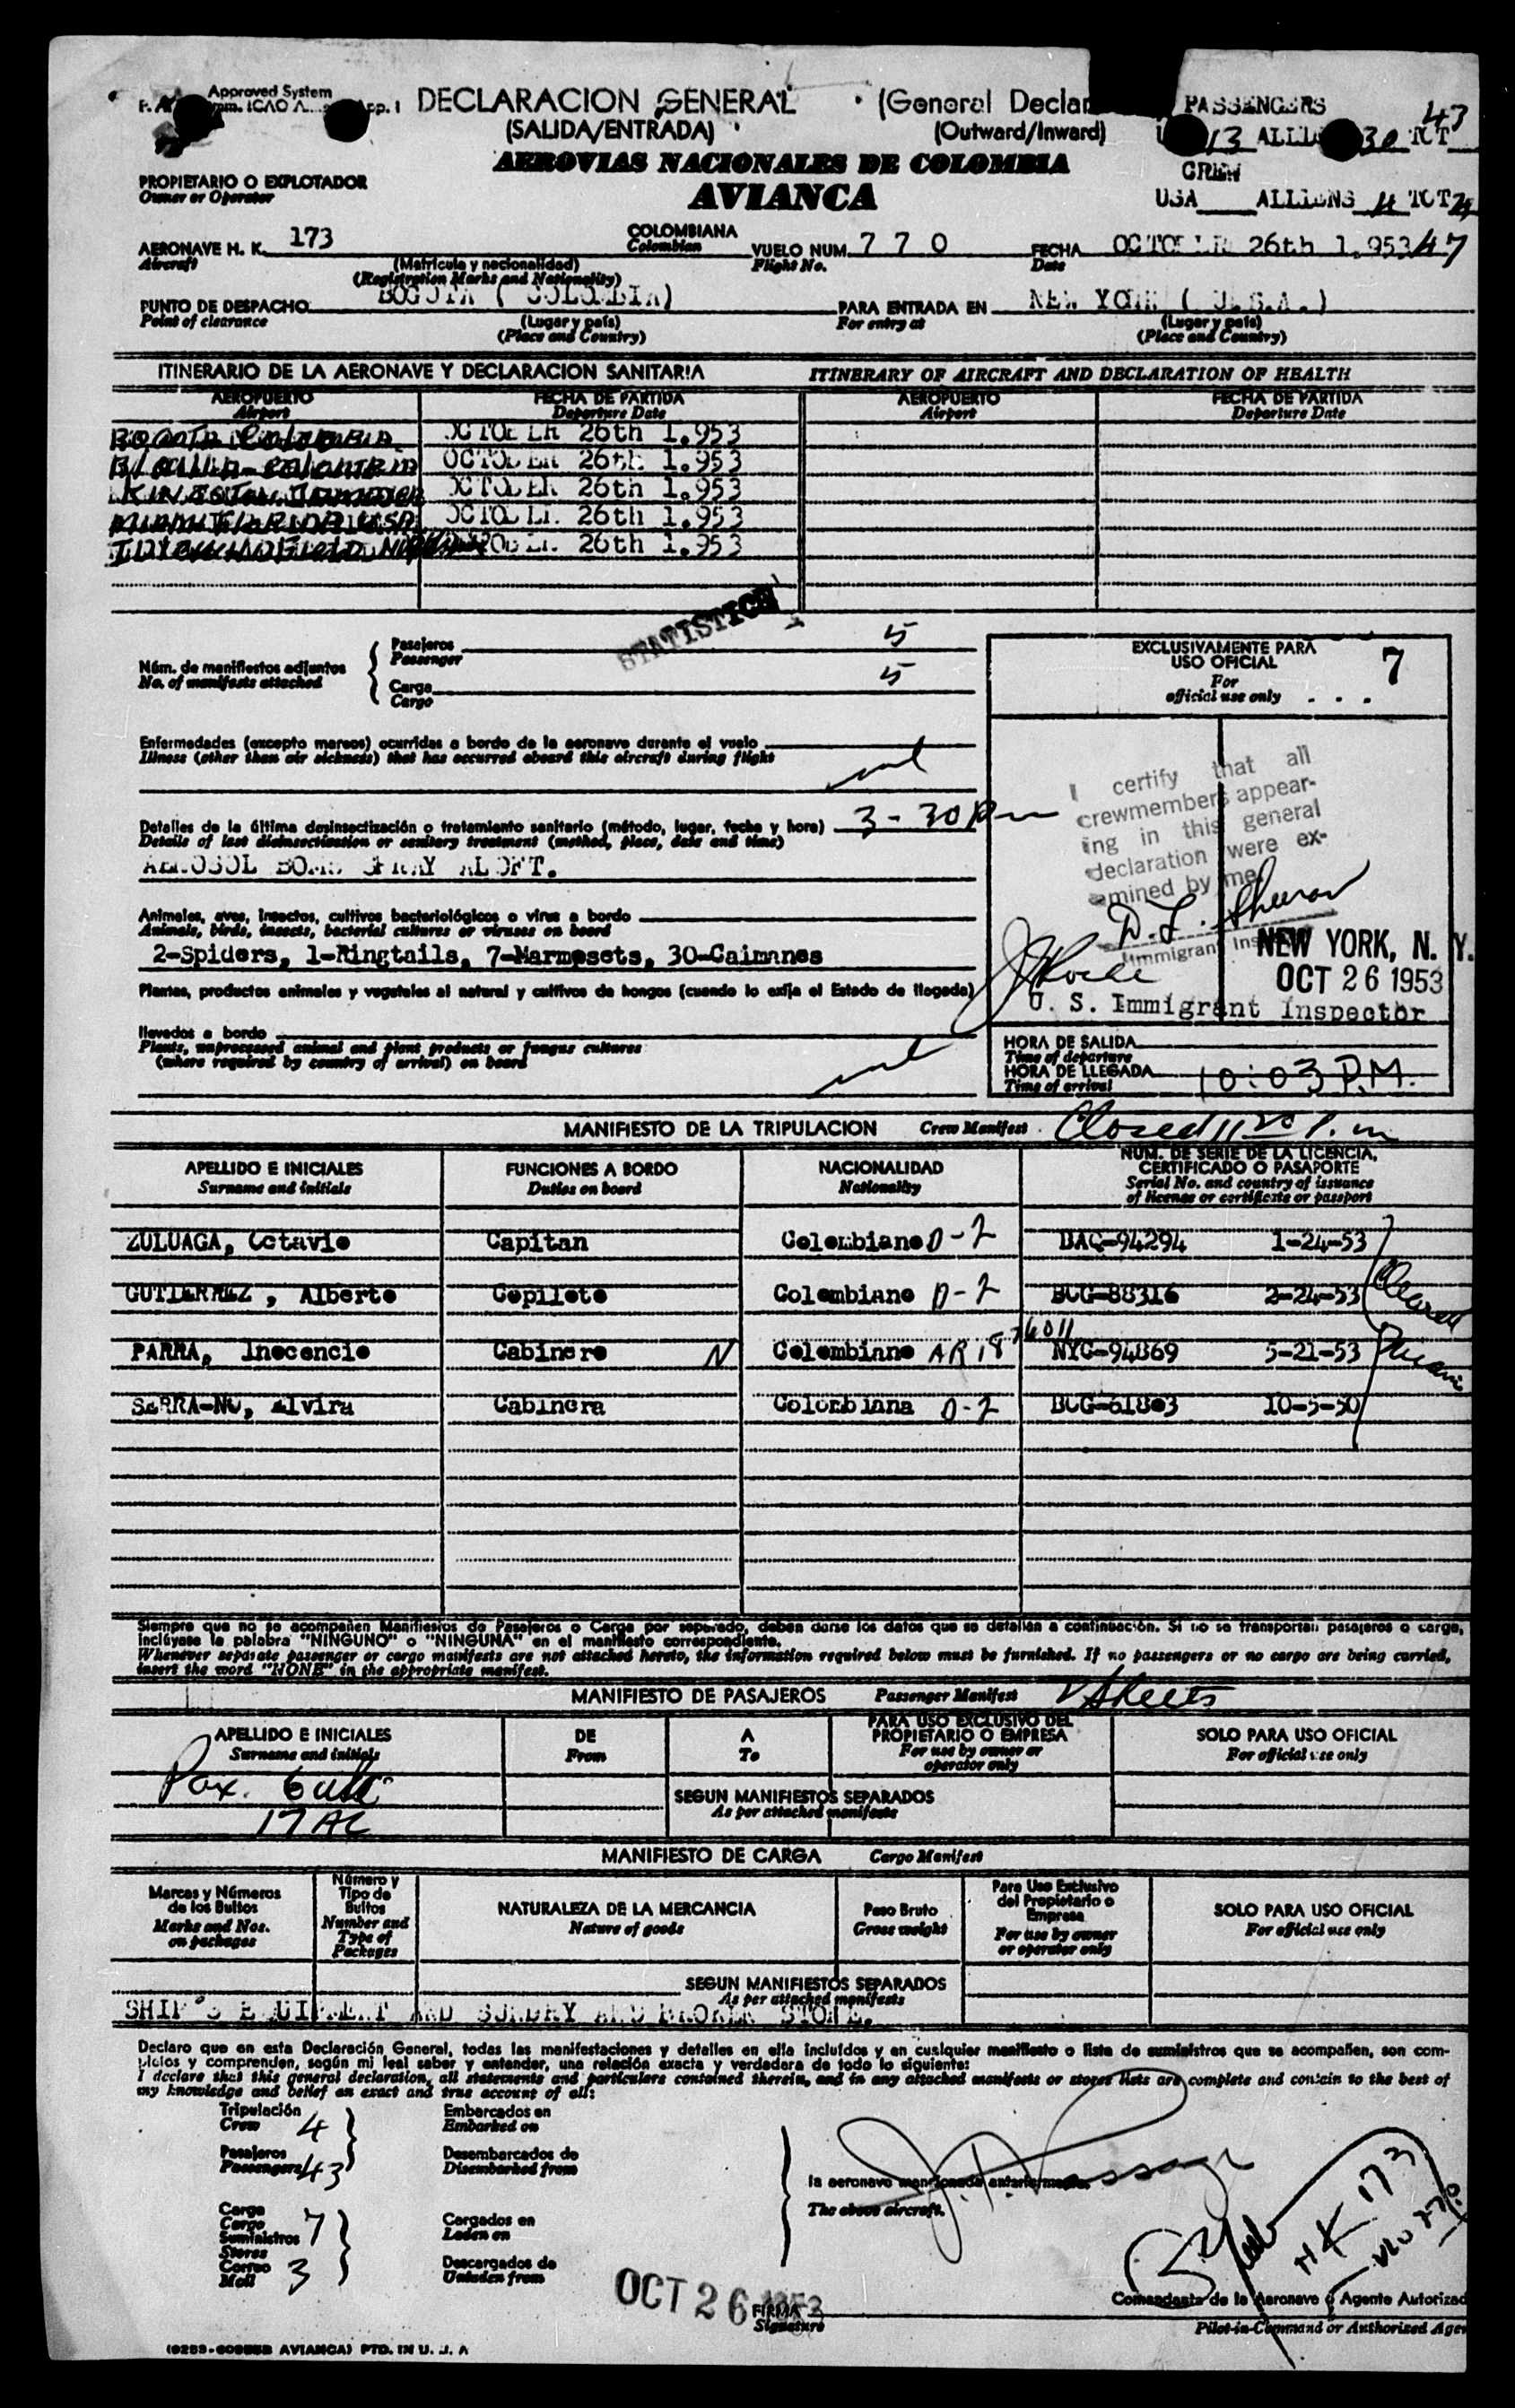 Approved System
DECLARACION GENERAL (General Declar
(SALIDA/ENTRADA) (Outward/Inward)
PASSENGERS 43
13 30 TOT
AEROVIAS NACIONALES DE COLOMBIA
CREW
PROPIETARIO O EXPLOTADOR
Owner or Operator
AVIANCA
USA ALLIENS 4 TOT 4
AERONAVE H. K. 173 COLOMBIANA VUELO NUM. 770 FECHA OCTOBER 26th 1.953 47
Aircraft (Matrícula y nacionalidad) Colombian Flight No. Date
(Registration Marks and Nationality)
PUNTO DE DESPACHO BOGOTA ( COLOMBIA) PARA ENTRADA EN NEW YORK ( U.S.A.)
Point of clearance (Lugar y país) For entry at (Lugar y país)
(Place and Country) (Place and Country)
ITINERARIO DE LA AERONAVE Y DECLARACION SANITARIA ITINERARY OF AIRCRAFT AND DECLARATION OF HEALTH
AEROPUERTO FECHA DE PARTIDA AEROPUERTO FECHA DE PARTIDA
Airport Departure Date Airport Departure Date
BOGOTA COLOMBIA OCTOBER 26th 1.953
B/QUILLA - COLOMBIA OCTOBER 26th 1.953
KINGSTON JAMAICA OCTOBER 26th 1.953
MIAMI FLORIDA USA OCTOBER 26th 1.953
OCTOBER 26th 1.953
STATISTICS
Núm. de manifiestos adjuntos
No. of manifests attached
Pasajeros 5
Passenger
Carga 5
Cargo
EXCLUSIVAMENTE PARA
USO OFICIAL 7
For
official use only
Enfermedades (excepto mareos) ocurridas a bordo de la aeronave durante el vuelo
Illness (other than air sickness) that has occurred aboard this aircraft during flight
nil
Detalles de la última desinsectización o tratamiento sanitario (método, lugar, fecha y hora) 3-30 Pm
Details of last disinsectization or sanitary treatment (method, place, date and time)
AEROSOL BOMB SPRAY ALOFT.
Animales, aves, insectos, cultivos bacteriológicos o virus a bordo
Animals, birds, insects, bacterial cultures or viruses on board
2-Spiders, 1-Ringtails, 7-Marmosets, 30-Caimanes
Plantas, productos animales y vegetales al natural y cultivos de hongos (cuando lo exija el Estado de llegada)
llevados a bordo
Plants, unprocessed animal and plant products or fungus cultures
(where required by country of arrival) on board
nil
I certify that all
crewmembers appear-
ing in this general
declaration were ex-
amined by me.
D. L. Sheeran
Immigrant Ins
NEW YORK, N. Y.
OCT 26 1953
U. S. Immigrant Inspector
HORA DE SALIDA
Time of departure
HORA DE LLEGADA 10:03 P.M.
Time of arrival
MANIFIESTO DE LA TRIPULACION Crew Manifest Closed 11 20 P.m
APELLIDO E INICIALES FUNCIONES A BORDO NACIONALIDAD NUM. DE SERIE DE LA LICENCIA,
CERTIFICADO O PASAPORTE
Surname and initials Duties on board Nationality Serial No. and country of issuance
of license or certificate or passport
ZULUAGA, Octavio Capitan Colombiano D-2 BAQ-94294 1-24-53
GUTIERREZ, Alberto Copiloto Colombiano D-2 BOG-88316 2-24-53 Cleared
PARRA, Inocencio Cabinero N Colombiano AR 1876011 NYC-94869 5-21-53 Miami
SERRA-NO, Elvira Cabinera Colombiana D-2 BOG-61803 10-5-50
Siempre que no se acompañen Manifiestos de Pasajeros o Carga por separado, deben darse los datos que se detallan a continuación. Si no se transportan pasajeros o carga,
inclúyase la palabra "NINGUNO" o "NINGUNA" en el manifiesto correspondiente.
Whenever separate passenger or cargo manifests are not attached hereto, the information required below must be furnished. If no passengers or no cargo are being carried,
insert the word "NONE" in the appropriate manifest.
MANIFIESTO DE PASAJEROS Passenger Manifest V Sheets
APELLIDO E INICIALES DE A PARA USO EXCLUSIVO DEL SOLO PARA USO OFICIAL
PROPIETARIO O EMPRESA
Surname and initials From To For use by owner or For official use only
operator only
Pax.
17 AC
SEGUN MANIFIESTOS SEPARADOS
As per attached manifests
MANIFIESTO DE CARGA Cargo Manifest
Marcas y Números
de los Bultos
Marks and Nos.
on packages
Número y
Tipo de
Bultos
Number and
Type of
Packages
NATURALEZA DE LA MERCANCIA
Nature of goods
Peso Bruto
Gross weight
Para Uso Exclusivo
del Propietario o
Empresa
For use by owner
or operator only
SOLO PARA USO OFICIAL
For official use only
SEGUN MANIFIESTOS SEPARADOS
As per attached manifests
SHIP'S EQUIPMENT AND SUNDRY AND BROKEN STONE.
Declaro que en esta Declaración General, todas las manifestaciones y detalles en ella incluídos y en cualquier manifiesto o lista de suministros que se acompañen, son com-
pletos y comprenden, según mi leal saber y entender, una relación exacta y verdadera de todo lo siguiente:
I declare that this general declaration, all statements and particulars contained therein, and in any attached manifests or stores lists are complete and contain to the best of
my knowledge and belief an exact and true account of all:
Tripulación
Crew 4
Pasajeros
Passengers 43
Embarcados en
Embarked on
Desembarcados de
Disembarked from
la aeronave mencionada anteriormente.
The above aircraft.
Carga
Cargo
Suministros 7
Stores
Correo
Mail 3
Cargados en
Laden on
Descargados de
Unladen from
HK 173
VLO 770
OCT 26 1953
FIRMA
Signature
Comandante de la Aeronave o Agente Autorizad
Pilot-in-Command or Authorized Agen
AVIANCA) PTD. IN U. S. A